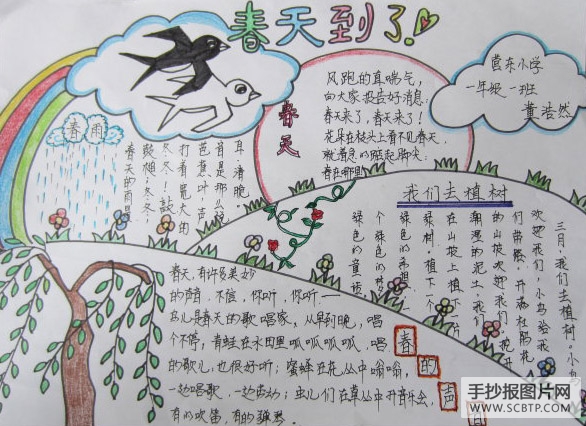 春天到了!
营东小学
一年级一班
黄浩然
春天
风跑的直喘气，
向大家报告好消息：
春天来了，春天来了！
花朵在枝头上看不见春天，
就着急的踮起脚尖：
春在哪里
春雨
春天的雨声
鼓，咚！咚！
冬！冬！敲
打着鼍大的
芭蕉叶，声
音是那么
真、清脆。
我们去植树
三月，我们去植树。小鸟
欢迎我们，小鸟给我
们带路，开满杜鹃花
的山坡欢迎我们，挖开
潮湿的泥土，我们
在山坡上植下一片
绿树，植下一个
绿色的希望，
个绿色的梦
绿色的童话
春的声音
春天，有许多美妙
的声音，不信，你听，你听——
虫儿是春天的歌唱家，从早到晚，唱
个不停；青蛙在水田里呱呱呱呱，唱
的歌儿也很好听；蜜蜂在花丛中嗡嗡，
一边唱歌，一边劳动；虫儿们在草丛中开音乐会，
有的吹笛，有的弹琴。
手抄报图片网
WWW.SCBTP.COM